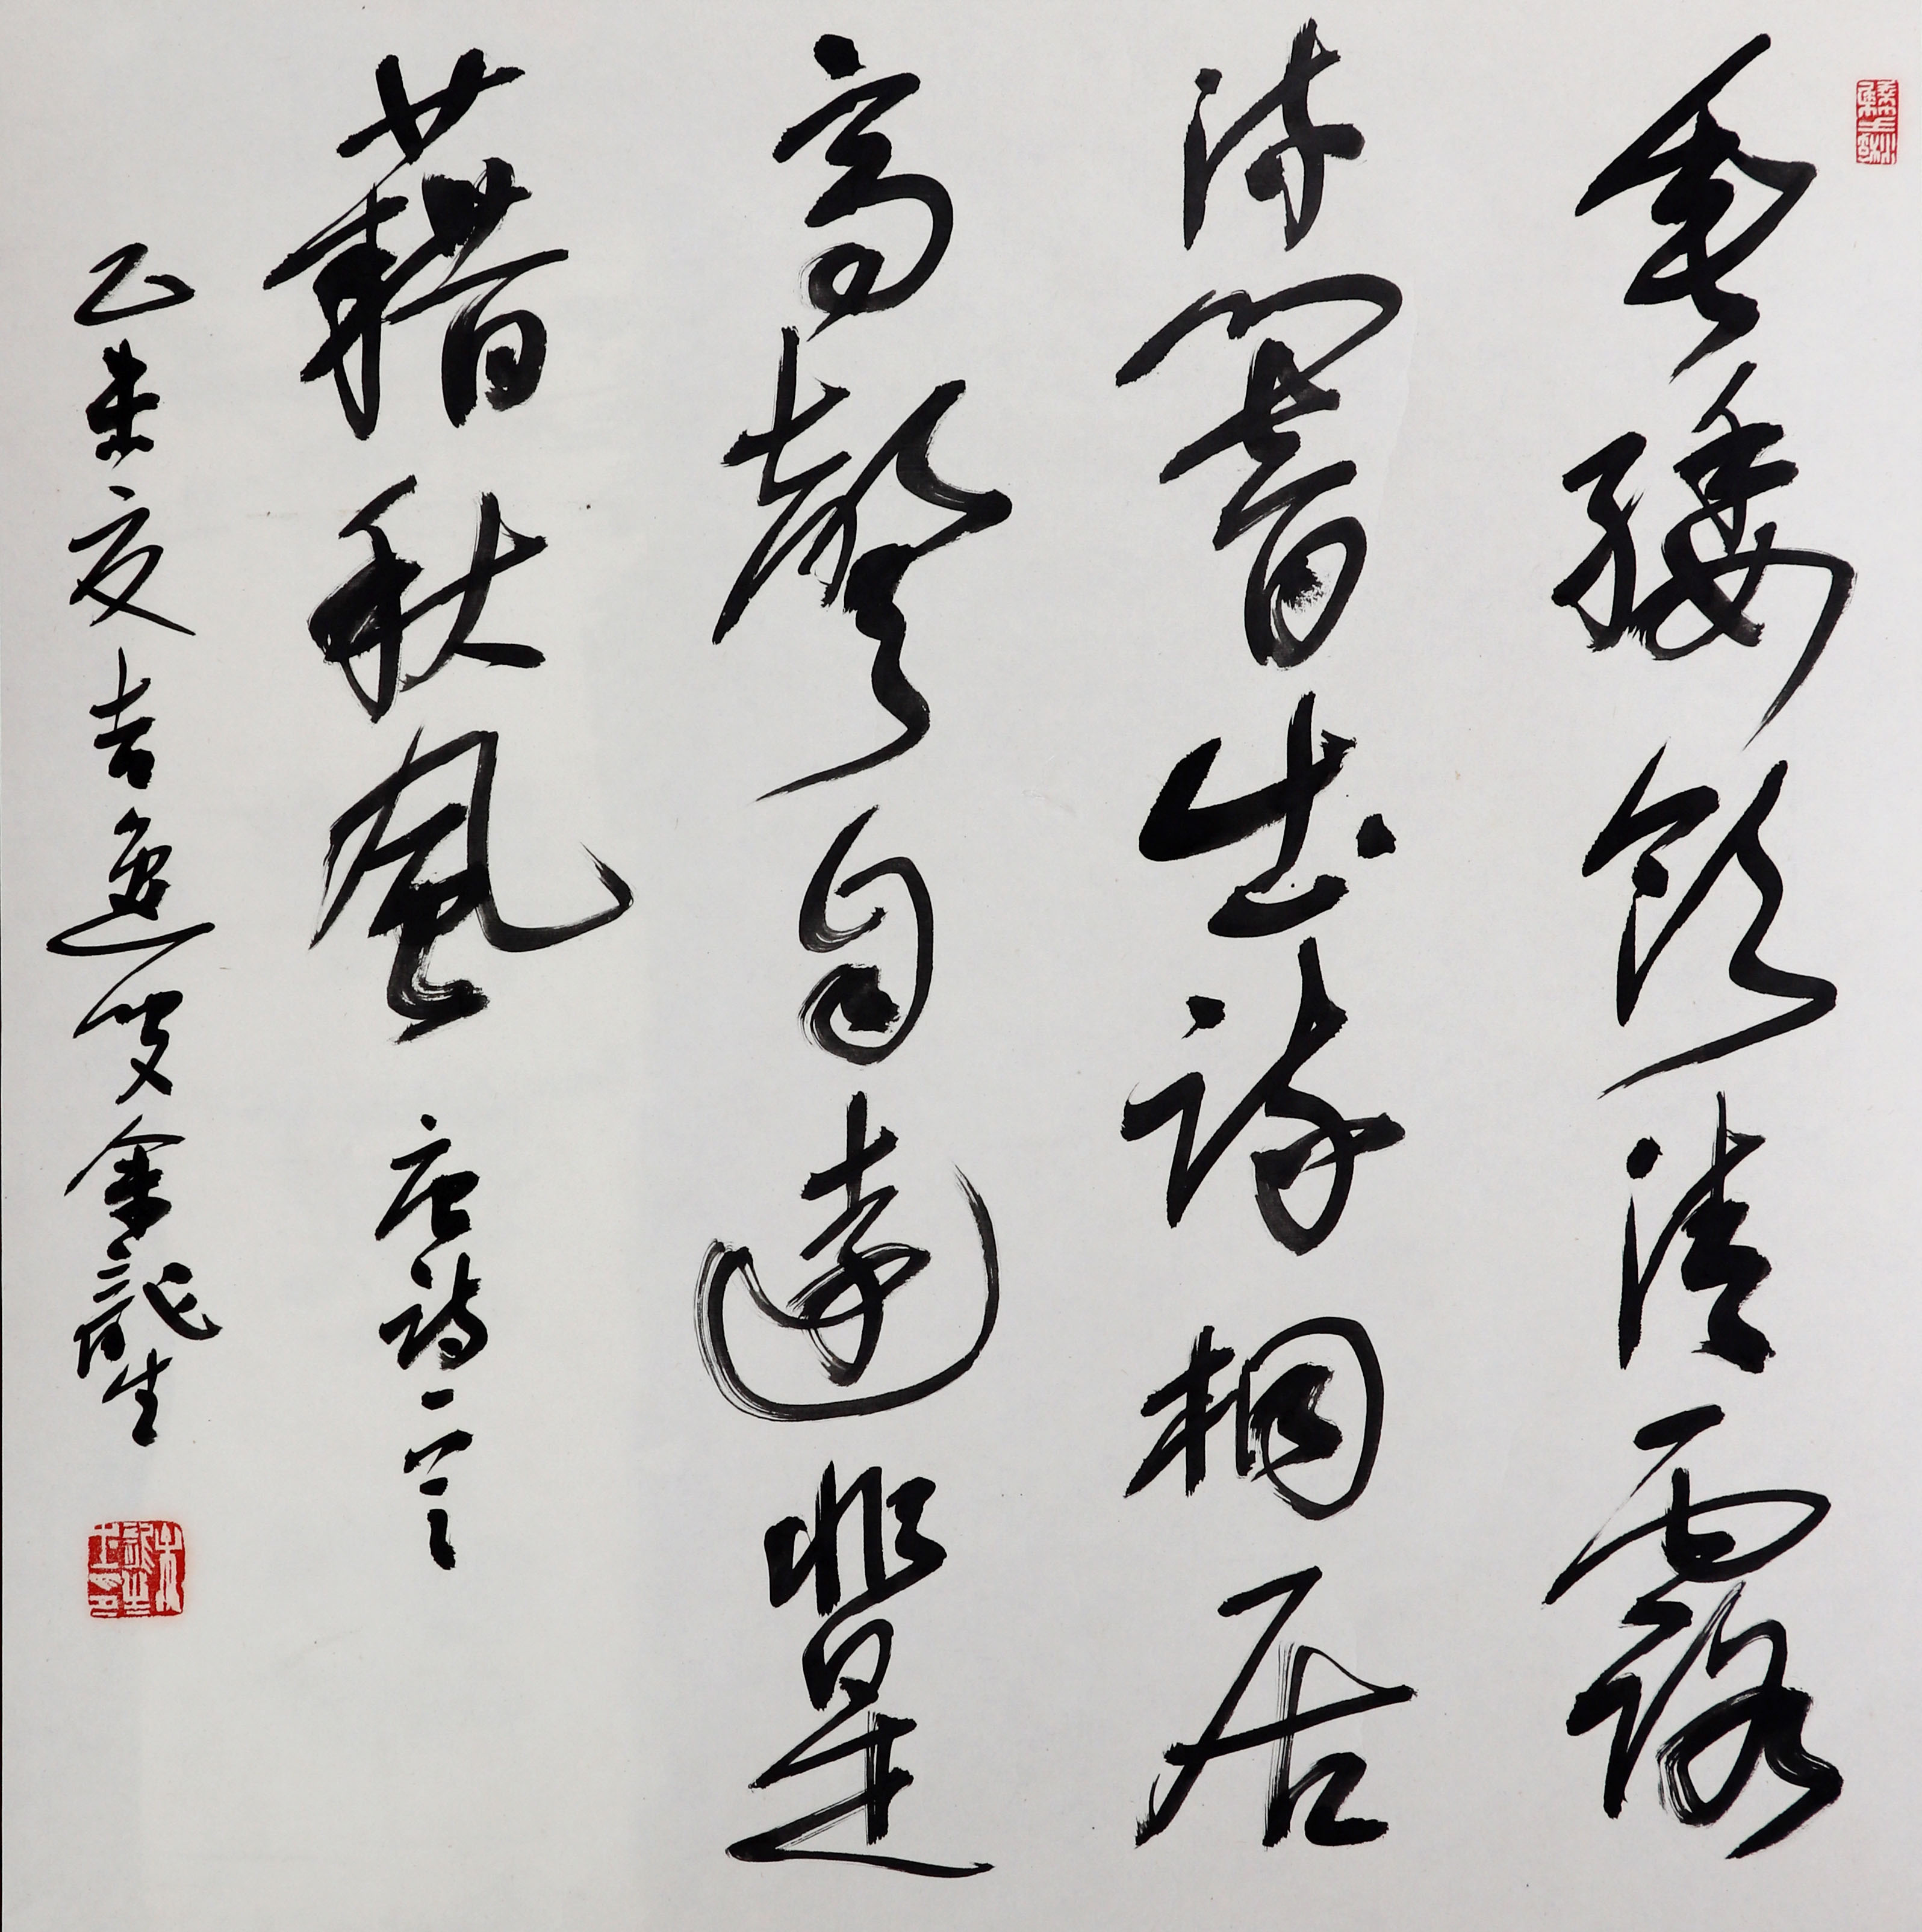 垂緌飲清露
流響出疏桐居
高聲自遠非是
藉秋風 唐詩一首
乙未夏吉逸叟 龍生